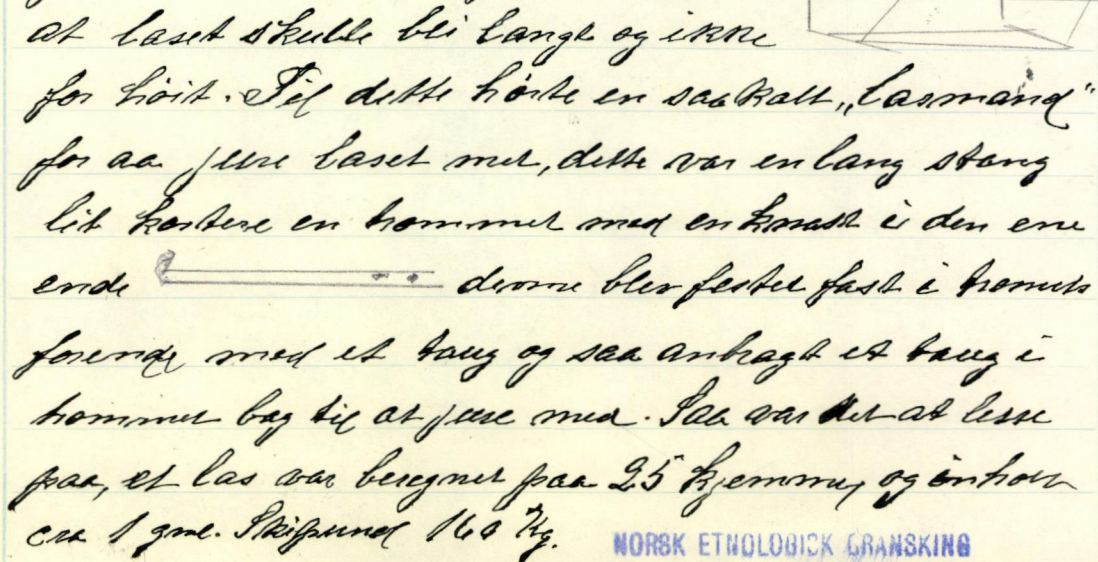 at laset skulde bli langt og ikke
for höit. Til dette hörte en saakalt „lasmand"
for aa jure laset met, dette var en lang stang
lit kortere en hommet med en knast i den ene
ende denne blev festet fast i hommets
forende med et taug og saa anbragt et taug i
hommet bag til at jure med. Saa var det at lesse
paa, et las var beregnet paa 25 Kjemmer, og inholt
cra 1 gml. Skipund 160 Kg.
NORSK ETNOLOGISK GRANSKING